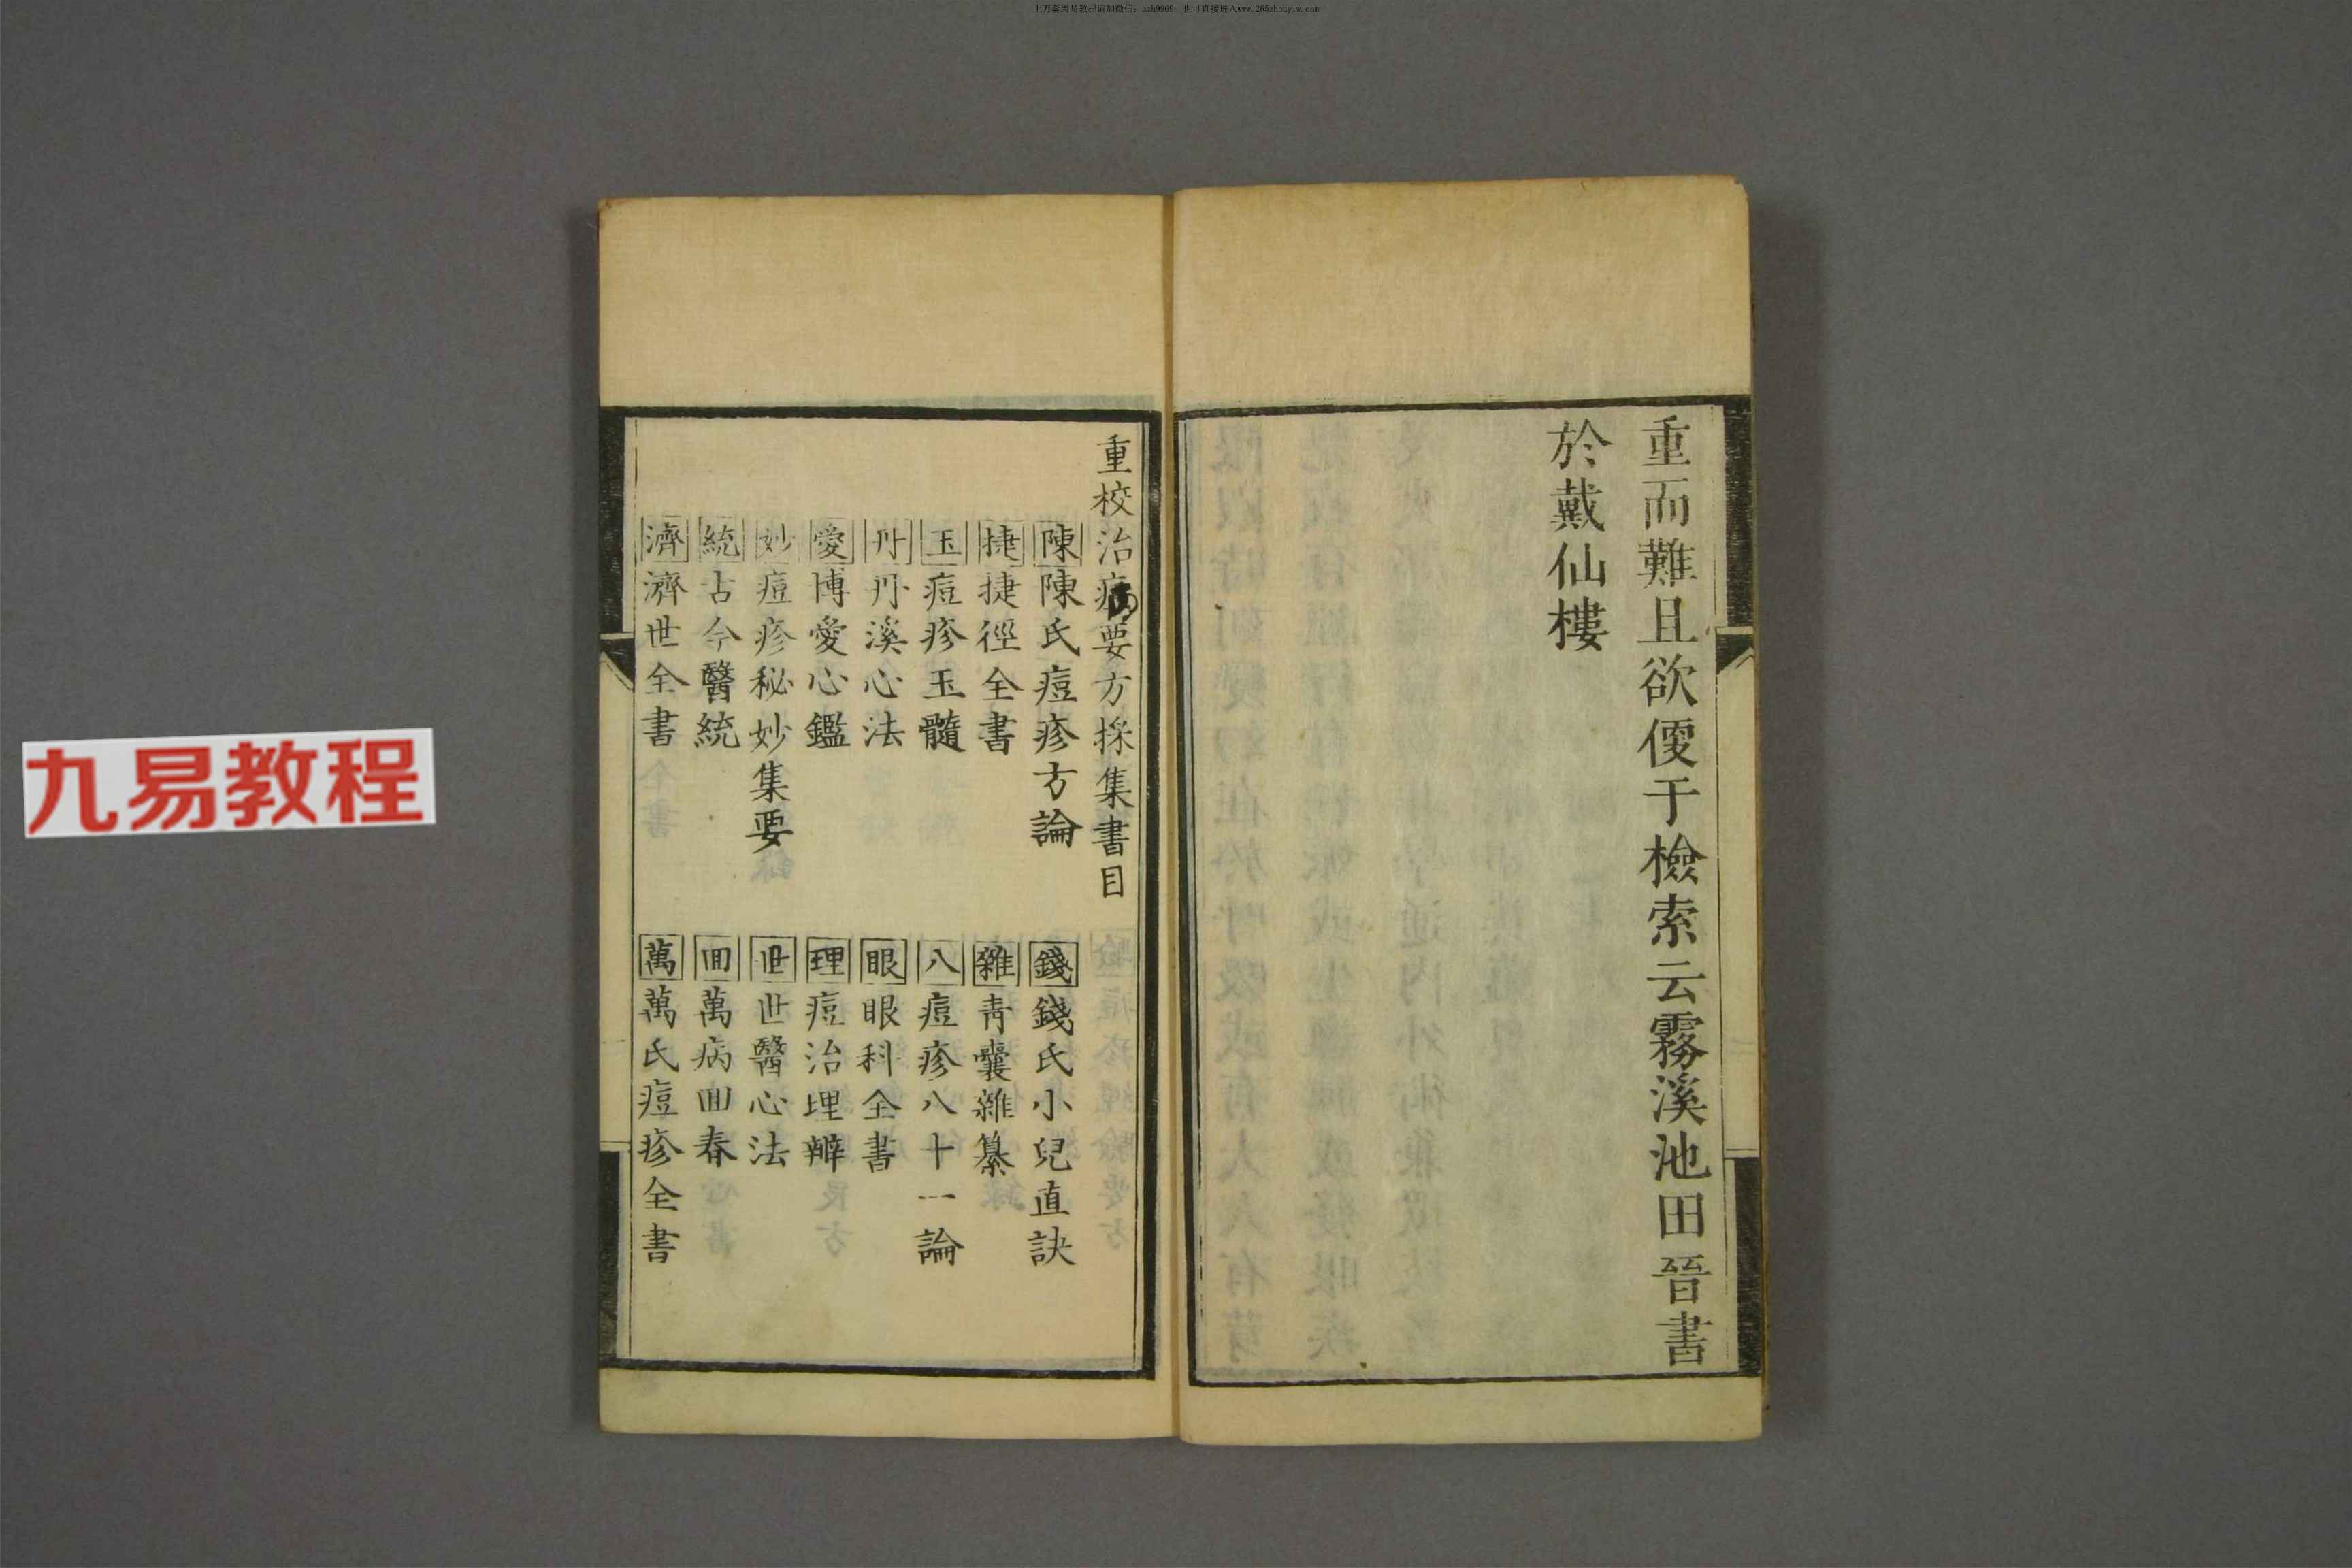 上万套周易教程请加微信：azh9969　也可直接进入www.265zhouyiw.com
重而難且欲便于檢索云霧溪池田晉書
於戴仙樓
重校治痘要方採集書目
陳 陳氏痘疹方論
錢 錢氏小兒直訣
捷 捷徑全書
雜 青囊雜纂
玉 痘疹玉髓
八 痘疹八十一論
丹 丹溪心法
眼 眼科全書
愛 博愛心鑑
理 痘治理辨
妙 痘疹秘妙集要
世 世醫心法
統 古今醫統
回 萬病回春
濟 濟世全書
萬 萬氏痘疹全書
九易教程